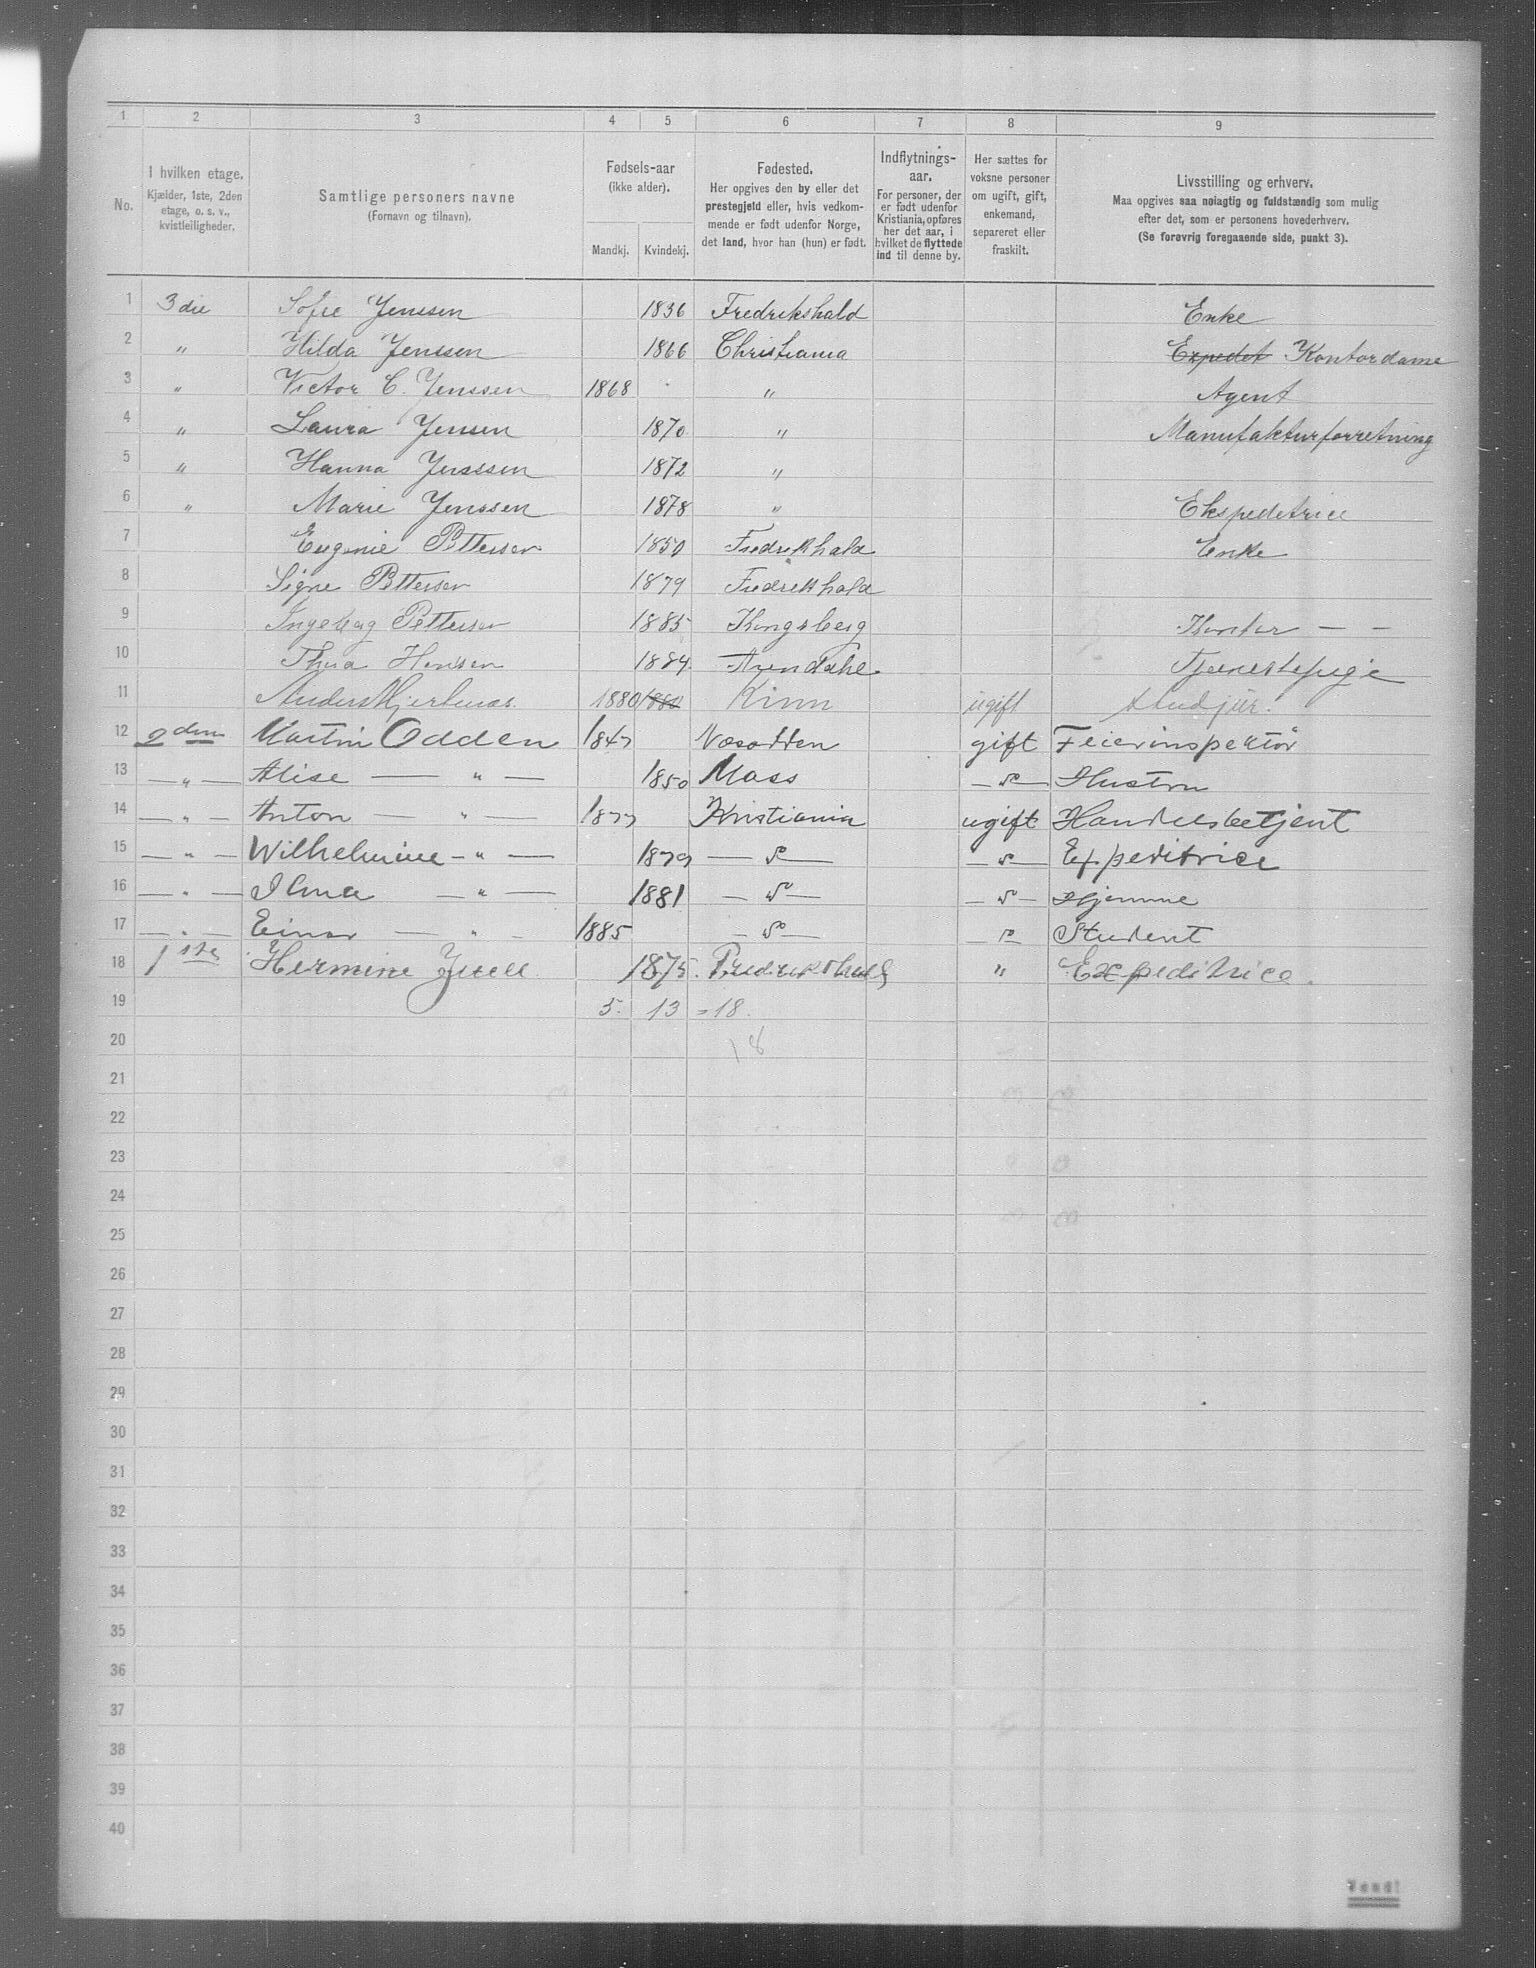 1 2 3 4 5 6 7 8 9
No.
I hvilken etage.
Kjælder, 1ste, 2den
etage, o. s. v.,
kvistleiligheder.
Samtlige personers navne
(Fornavn og tilnavn).
Fødsels-aar
(ikke alder).
Mandkj. Kvindekj.
Fødested.
Her opgives den by eller det
prestegjeld eller, hvis vedkom-
mende er født udenfor Norge,
det land, hvor han (hun) er født.
Indflytnings-
aar.
For personer, der
er født udenfor
Kristiania, opføres
her det aar, i
hvilket de flyttede
ind til denne by.
Her sættes for
voksne personer
om ugift, gift,
enkemand,
separeret eller
fraskilt.
Livsstilling og erhverv.
Maa opgives saa nøiagtig og fuldstændig som mulig
efter det, som er personens hovederhverv.
(Se forøvrig foregaaende side, punkt 3).
1 3die Sofie Jenssen 1836 Fredrikshald Enke
2 " Hilda Jenssen 1866 Christiania Expedit Kontordame
3 " Victor C. Jenssen 1868 " Agent
4 " Laura Jensen 1870 " Manufakturforretning
5 " Hanna Jenssen 1872 "
6 " Marie Jenssen 1878 " Ekspeditrice
7 Eugenie Pettersen 1850 Fredrikhald Enke
8 Signe Pettersen 1879 Fredrikhald
9 Ingeborg Pettersen 1885 Kongsberg Kontor — —
10 Thea Hansen 1884 Arendahl Tjenestepige
11 Anders 1880 1880 Kinn ugift stud jur.
12 2den Martin Odden 1847 Næsodden gift Feierinspektør
13 — " — Alise — " — 1850 Moss — " — Hustru
14 — " — Anton — " — 1877 Kristiania ugift Handelsbetjent
15 — " — Wilhelmine — " — 1879 — " — — " — Expeditrice
16 — " — Alma — " — 1881 — " — — " — Hjemme
17 — " — Einar — " — 1885 — " — — " — Student
18 1ste Hermine Juell 1875 Fredrikshald " Expeditrice.
19 5. 13 = 18.
20 18
21
22
23
24
25
26
27
28
29
30
31
32
33
34
35
36
37
38
39
40
Vend!